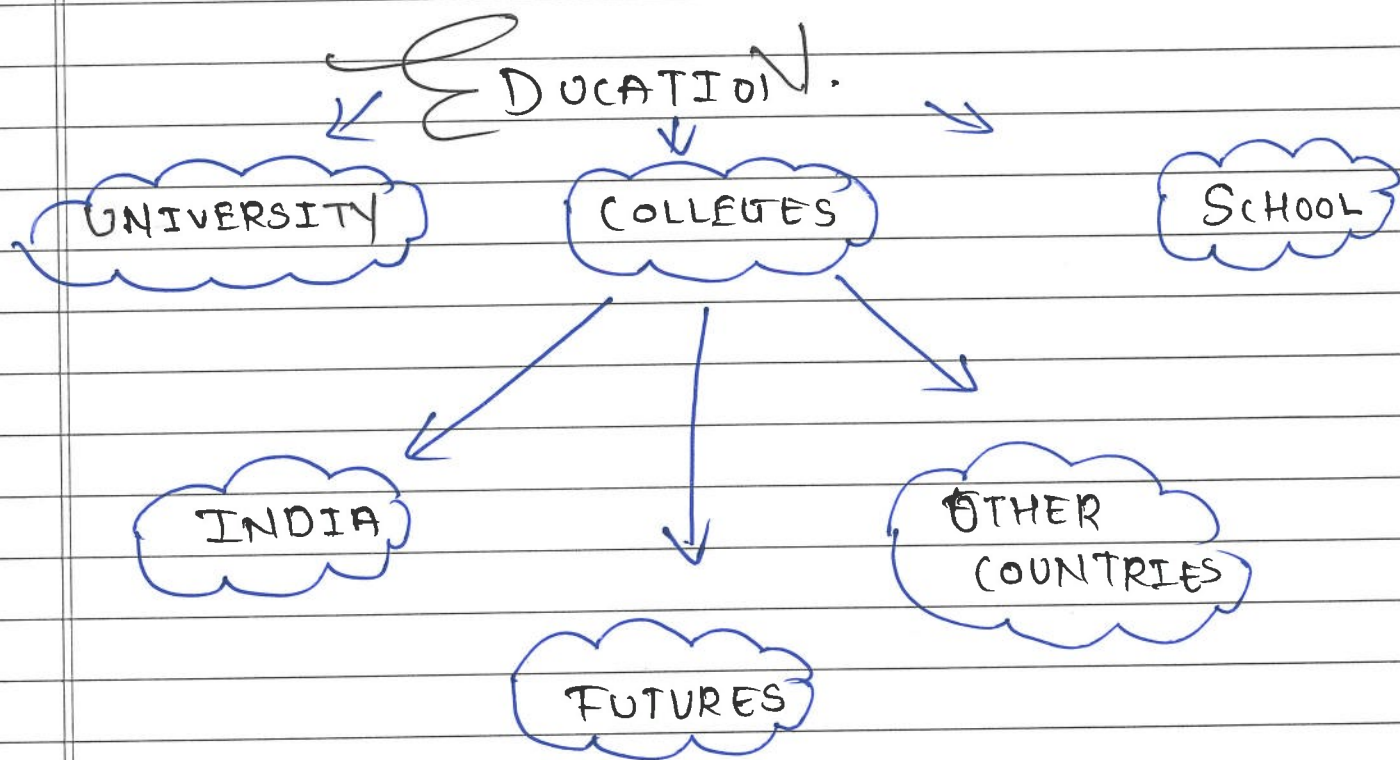 EDUCATION.
UNIVERSITY
COLLEGES
SCHOOL
INDIA
OTHER
COUNTRIES
FUTURES